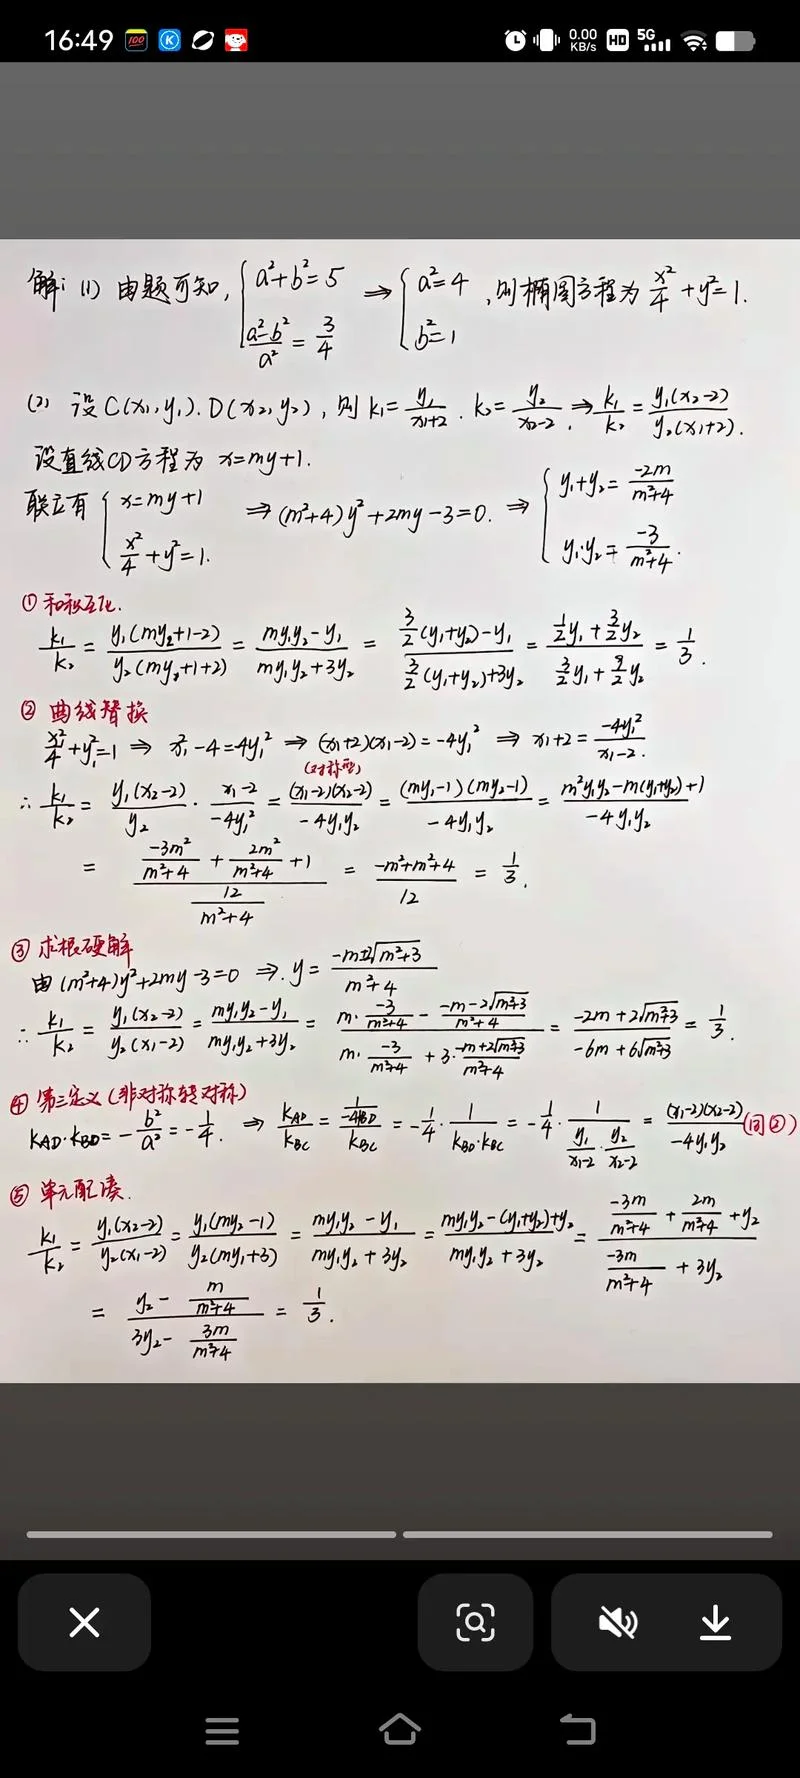 16:49 100 K 0.00 KB/s HD 5G
解：(1) 由题可知, { a²+b²=5 , (a²-b²)/a² = 3/4 ⇒ { a²=4 , b²=1 ,则椭圆方程为 x²/4 + y²=1.
(2) 设 C(x₁,y₁). D(x₂,y₂), 则 k₁= y₁/(x₁+2) . k₂= y₂/(x₂-2) . ⇒ k₁/k₂ = y₁(x₂-2)/y₂(x₁+2).
设直线CD方程为 x=my+1.
联立有 { x=my+1 , x²/4 + y²=1. ⇒ (m²+4)y²+2my-3=0. ⇒ { y₁+y₂= -2m/(m²+4) , y₁·y₂= -3/(m²+4).
① 和积互化.
k₁/k₂ = y₁(my₂+1-2)/y₂(my₁+1+2) = (my₁y₂-y₁)/(my₁y₂+3y₂) = (3/2(y₁+y₂)-y₁)/(3/2(y₁+y₂)+3y₂) = (1/2y₁+3/2y₂)/(3/2y₁+9/2y₂) = 1/3.
② 曲线替换
x₁²/4+y₁²=1 ⇒ x₁²-4=4y₁² ⇒ (x₁+2)(x₁-2)=-4y₁² ⇒ x₁+2= -4y₁²/(x₁-2).
(对称型)
∴ k₁/k₂ = y₁(x₂-2)/y₂ · (x₁-2)/-4y₁² = (x₁-2)(x₂-2)/-4y₁y₂ = (my₁-1)(my₂-1)/-4y₁y₂ = (m²y₁y₂-m(y₁+y₂)+1)/-4y₁y₂
= (-3m²/(m²+4) + 2m²/(m²+4) +1)/(12/(m²+4)) = (-m²+m²+4)/12 = 1/3.
③ 求根硬解
由(m²+4)y²+2my-3=0 ⇒. y= (-m±2√(m²+3))/(m²+4)
∴ k₁/k₂ = y₁(x₂-2)/y₂(x₁-2) = (my₁y₂-y₁)/(my₁y₂+3y₂) = (m·-3/(m²+4) - (-m-2√(m²+3))/(m²+4))/(m·-3/(m²+4) + 3·(-m+2√(m²+3))/(m²+4)) = (-2m+2√(m²+3))/(-6m+6√(m²+3)) = 1/3.
④ 第三定义(非对称转对称)
kAD·kBD=-b²/a²=-1/4. ⇒ kAD/kBC = (1/-4kBD)/kBC = -1/4·1/(kBD·kBC) = -1/4·1/(y₁/(x₁-2)·y₂/(x₂-2)) = (x₁-2)(x₂-2)/-4y₁y₂ (同②)
⑤ 单元配凑.
k₁/k₂ = y₁(x₂-2)/y₂(x₁-2) = y₁(my₂-1)/y₂(my₁+3) = (my₁y₂-y₁)/(my₁y₂+3y₂) = (my₁y₂-(y₁+y₂)+y₂)/(my₁y₂+3y₂) = (-3m/(m²+4) + 2m/(m²+4) +y₂)/(-3m/(m²+4) + 3y₂)
= (y₂- m/(m²+4))/(3y₂- 3m/(m²+4)) = 1/3.